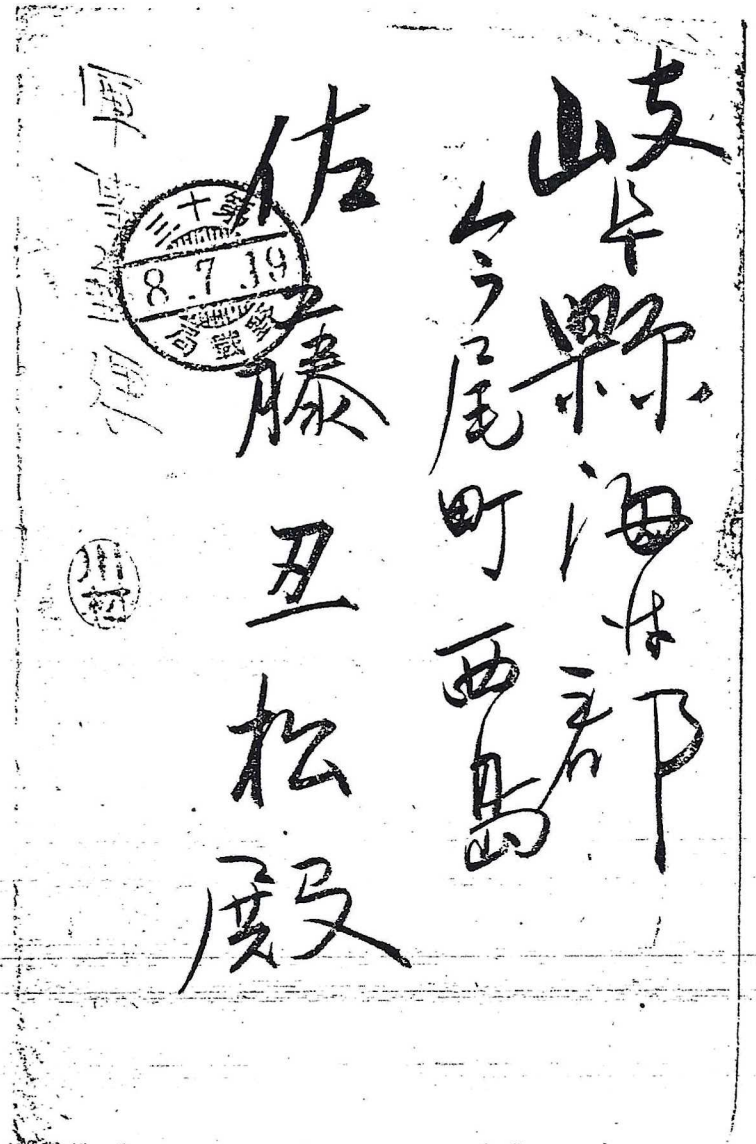 岐阜縣海津郡
今尾町西島
佐藤丑松殿
軍事郵便
第十三
8.7.19
野戰局